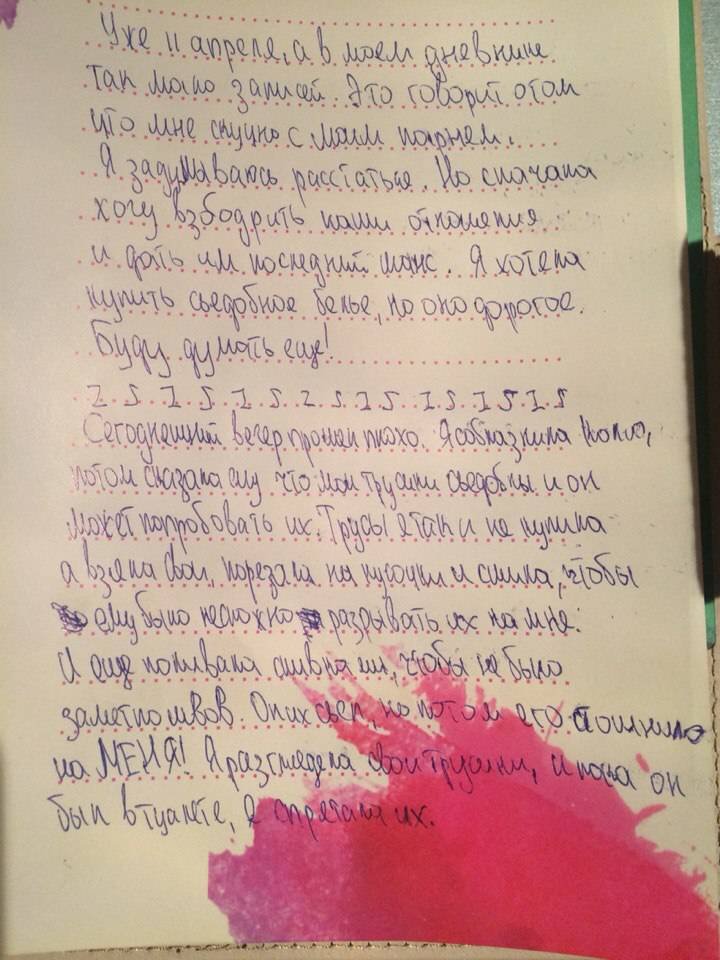 Уже 11 апреля, а в моем дневнике
так мало записей. Это говорит о том
что мне скучно с моим парнем.
Я задумываюсь расстаться. Но сначала
хочу взбодрить наши отношения
и дать им последний шанс. Я хотела
купить сьедобное белье, но оно дорогое.
Буду думать еще!
Сегоднешний вечер прошел плохо. Я соблазнила Колю,
потом сказала ему что мои трусики сьедобны и он
может попробовать их. Трусы я так и не купила
а взяла свои, порезала на кусочки и сшила, чтобы
ему было несложно разрывать их на мне.
И еще поливала сливками, чтобы не было
заметно швов. Он их сьел, но потом его стошнило
на МЕНЯ! Я разглядела свои трусики, и пока он
был в туалете, я спрятала их.